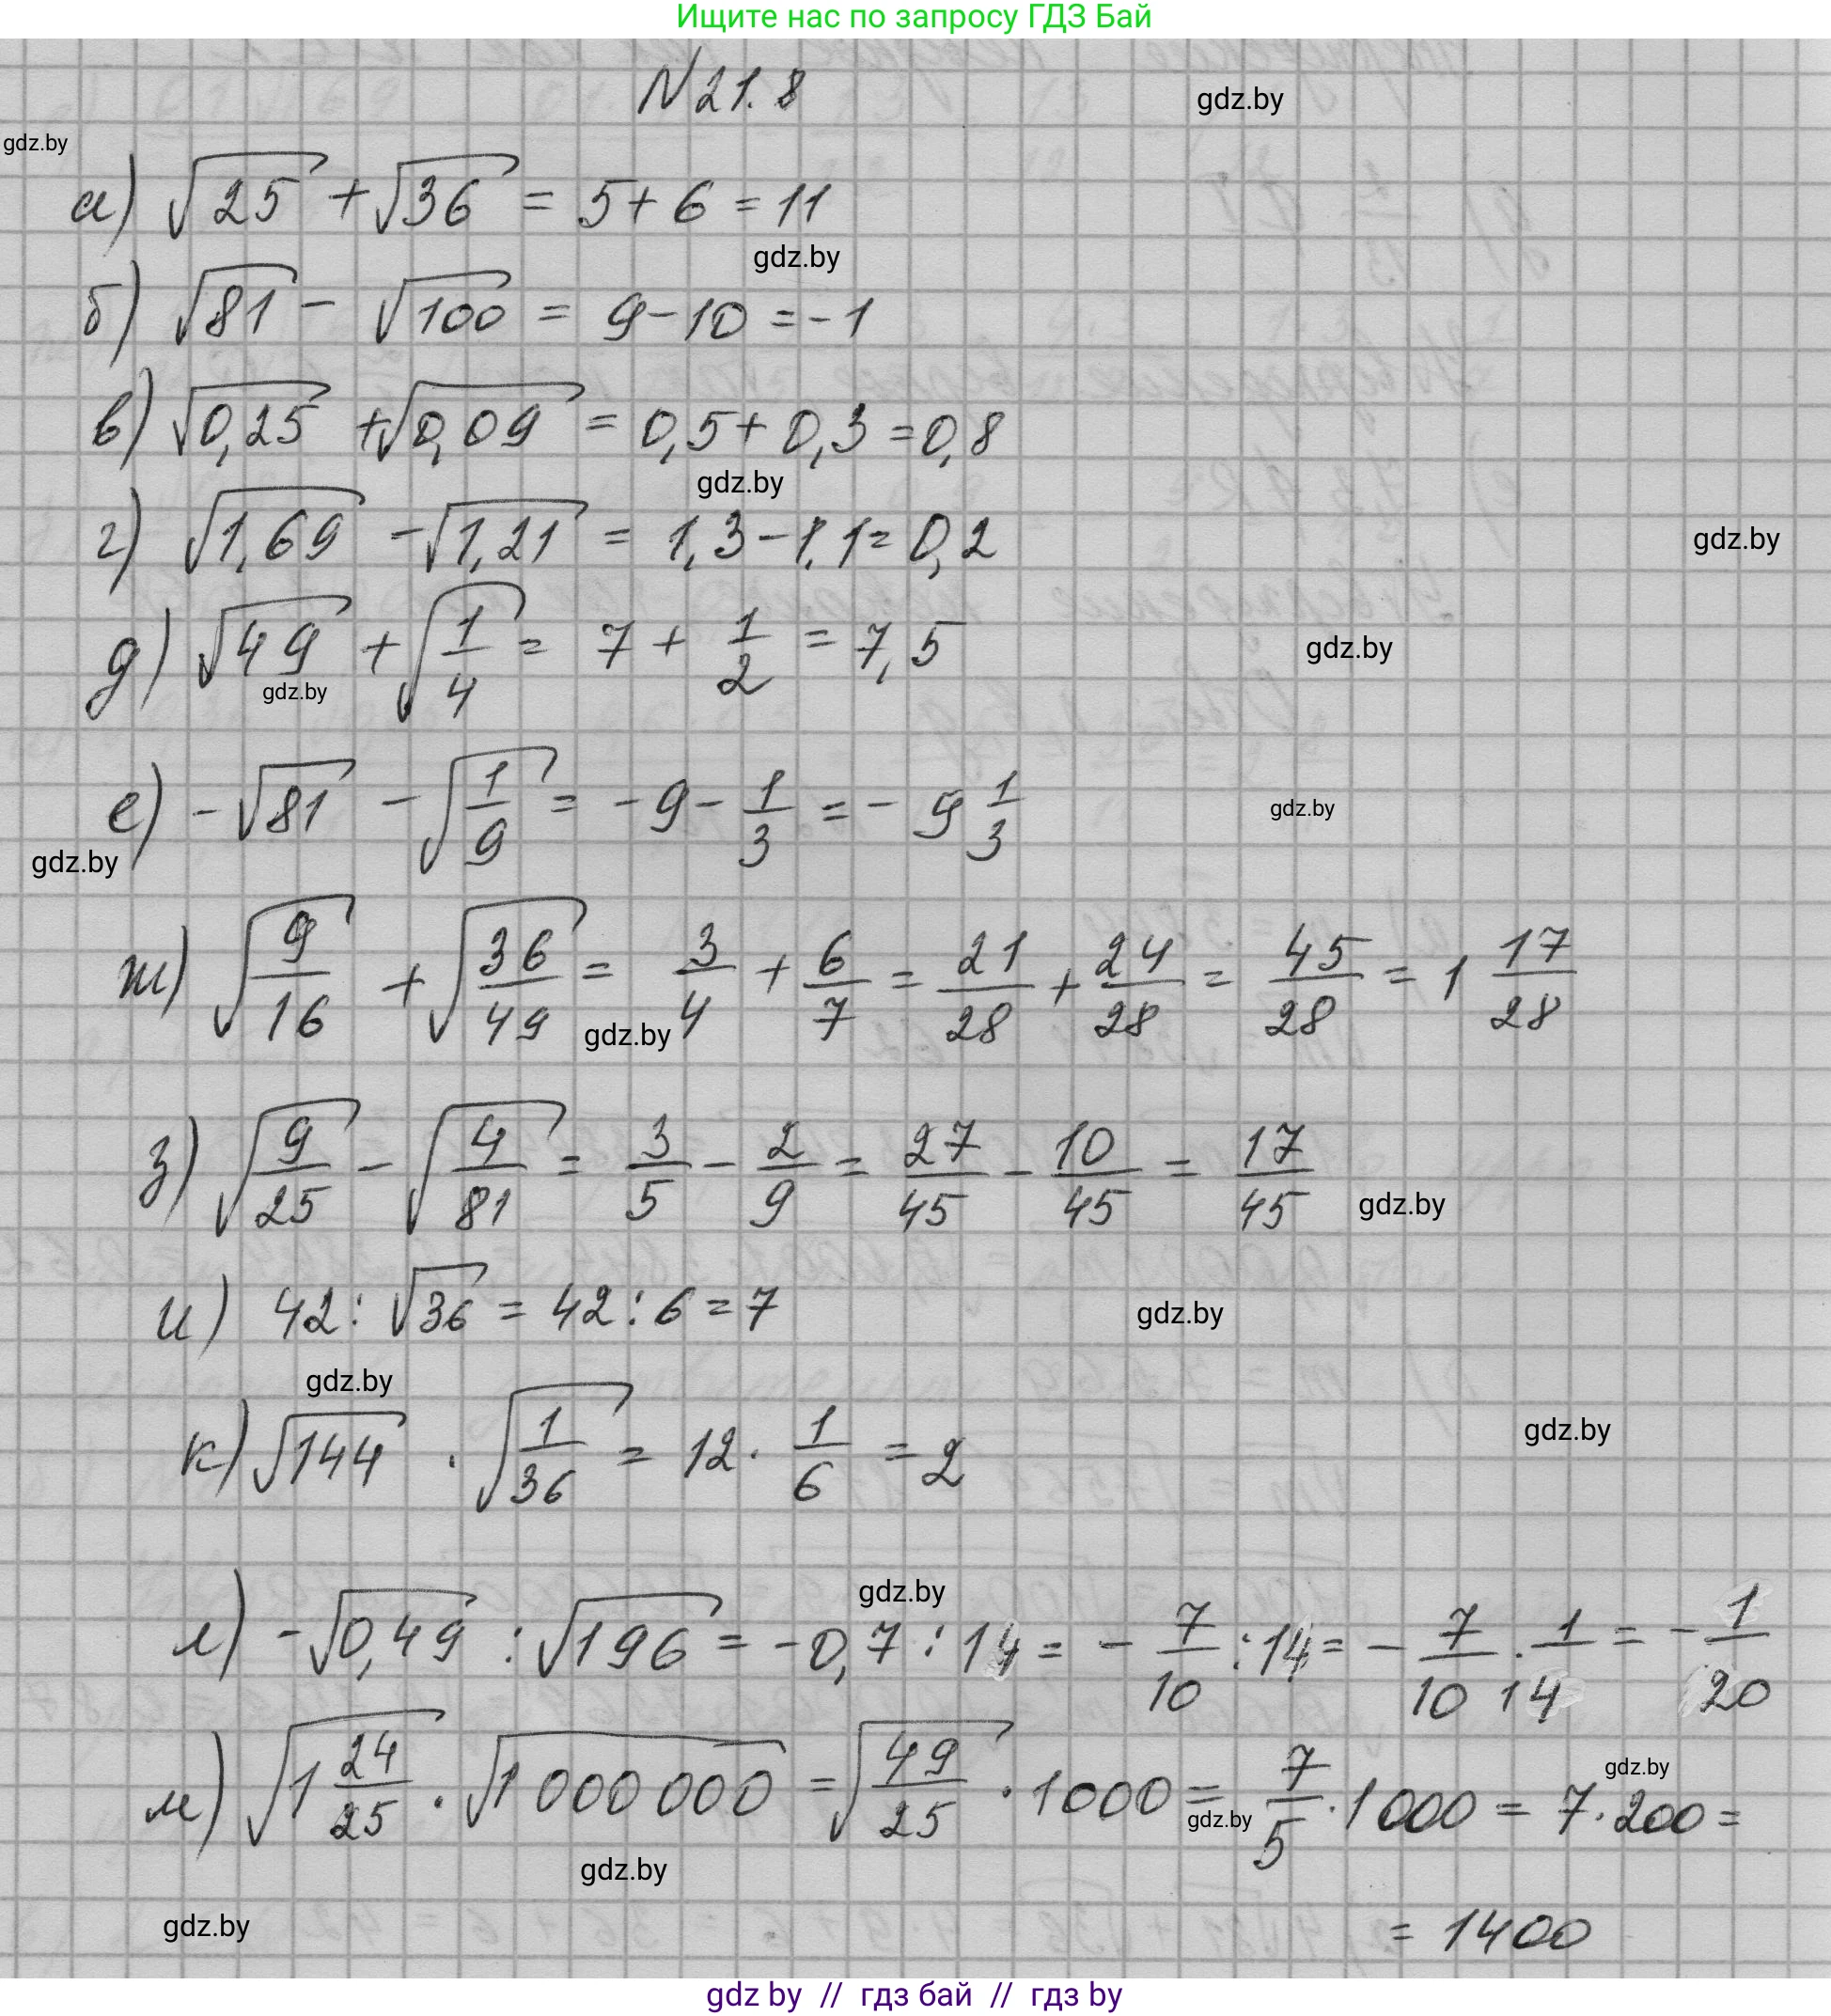 Ищите нас по запросу ГДЗ Бай
N 21.8
gdz.by
gdz.by
а) √25 + √36 = 5 + 6 = 11
gdz.by
б) √81 - √100 = 9 - 10 = -1
в) √0,25 + √0,09 = 0,5 + 0,3 = 0,8
gdz.by
г) √1,69 - √1,21 = 1,3 - 1,1 = 0,2
gdz.by
д) √49 + √(1/4) = 7 + 1/2 = 7,5
gdz.by
gdz.by
е) -√81 - √(1/9) = -9 - 1/3 = -9 1/3
gdz.by
gdz.by
ж) √(9/16) + √(36/49) = 3/4 + 6/7 = 21/28 + 24/28 = 45/28 = 1 17/28
gdz.by
з) √(9/25) - √(4/81) = 3/5 - 2/9 = 27/45 - 10/45 = 17/45
gdz.by
и) 42 : √36 = 42 : 6 = 7
gdz.by
gdz.by
к) √144 · √(1/36) = 12 · 1/6 = 2
gdz.by
gdz.by
л) -√0,49 : √196 = -0,7 : 14 = - 7/10 : 14 = - 7/10 · 1/14 = - 1/20
м) √(1 24/25) · √1 000 000 = √(49/25) · 1000 = 7/5 · 1000 = 7 · 200 =
gdz.by
gdz.by
gdz.by
gdz.by
= 1400
gdz by // гдз бай // гдз by